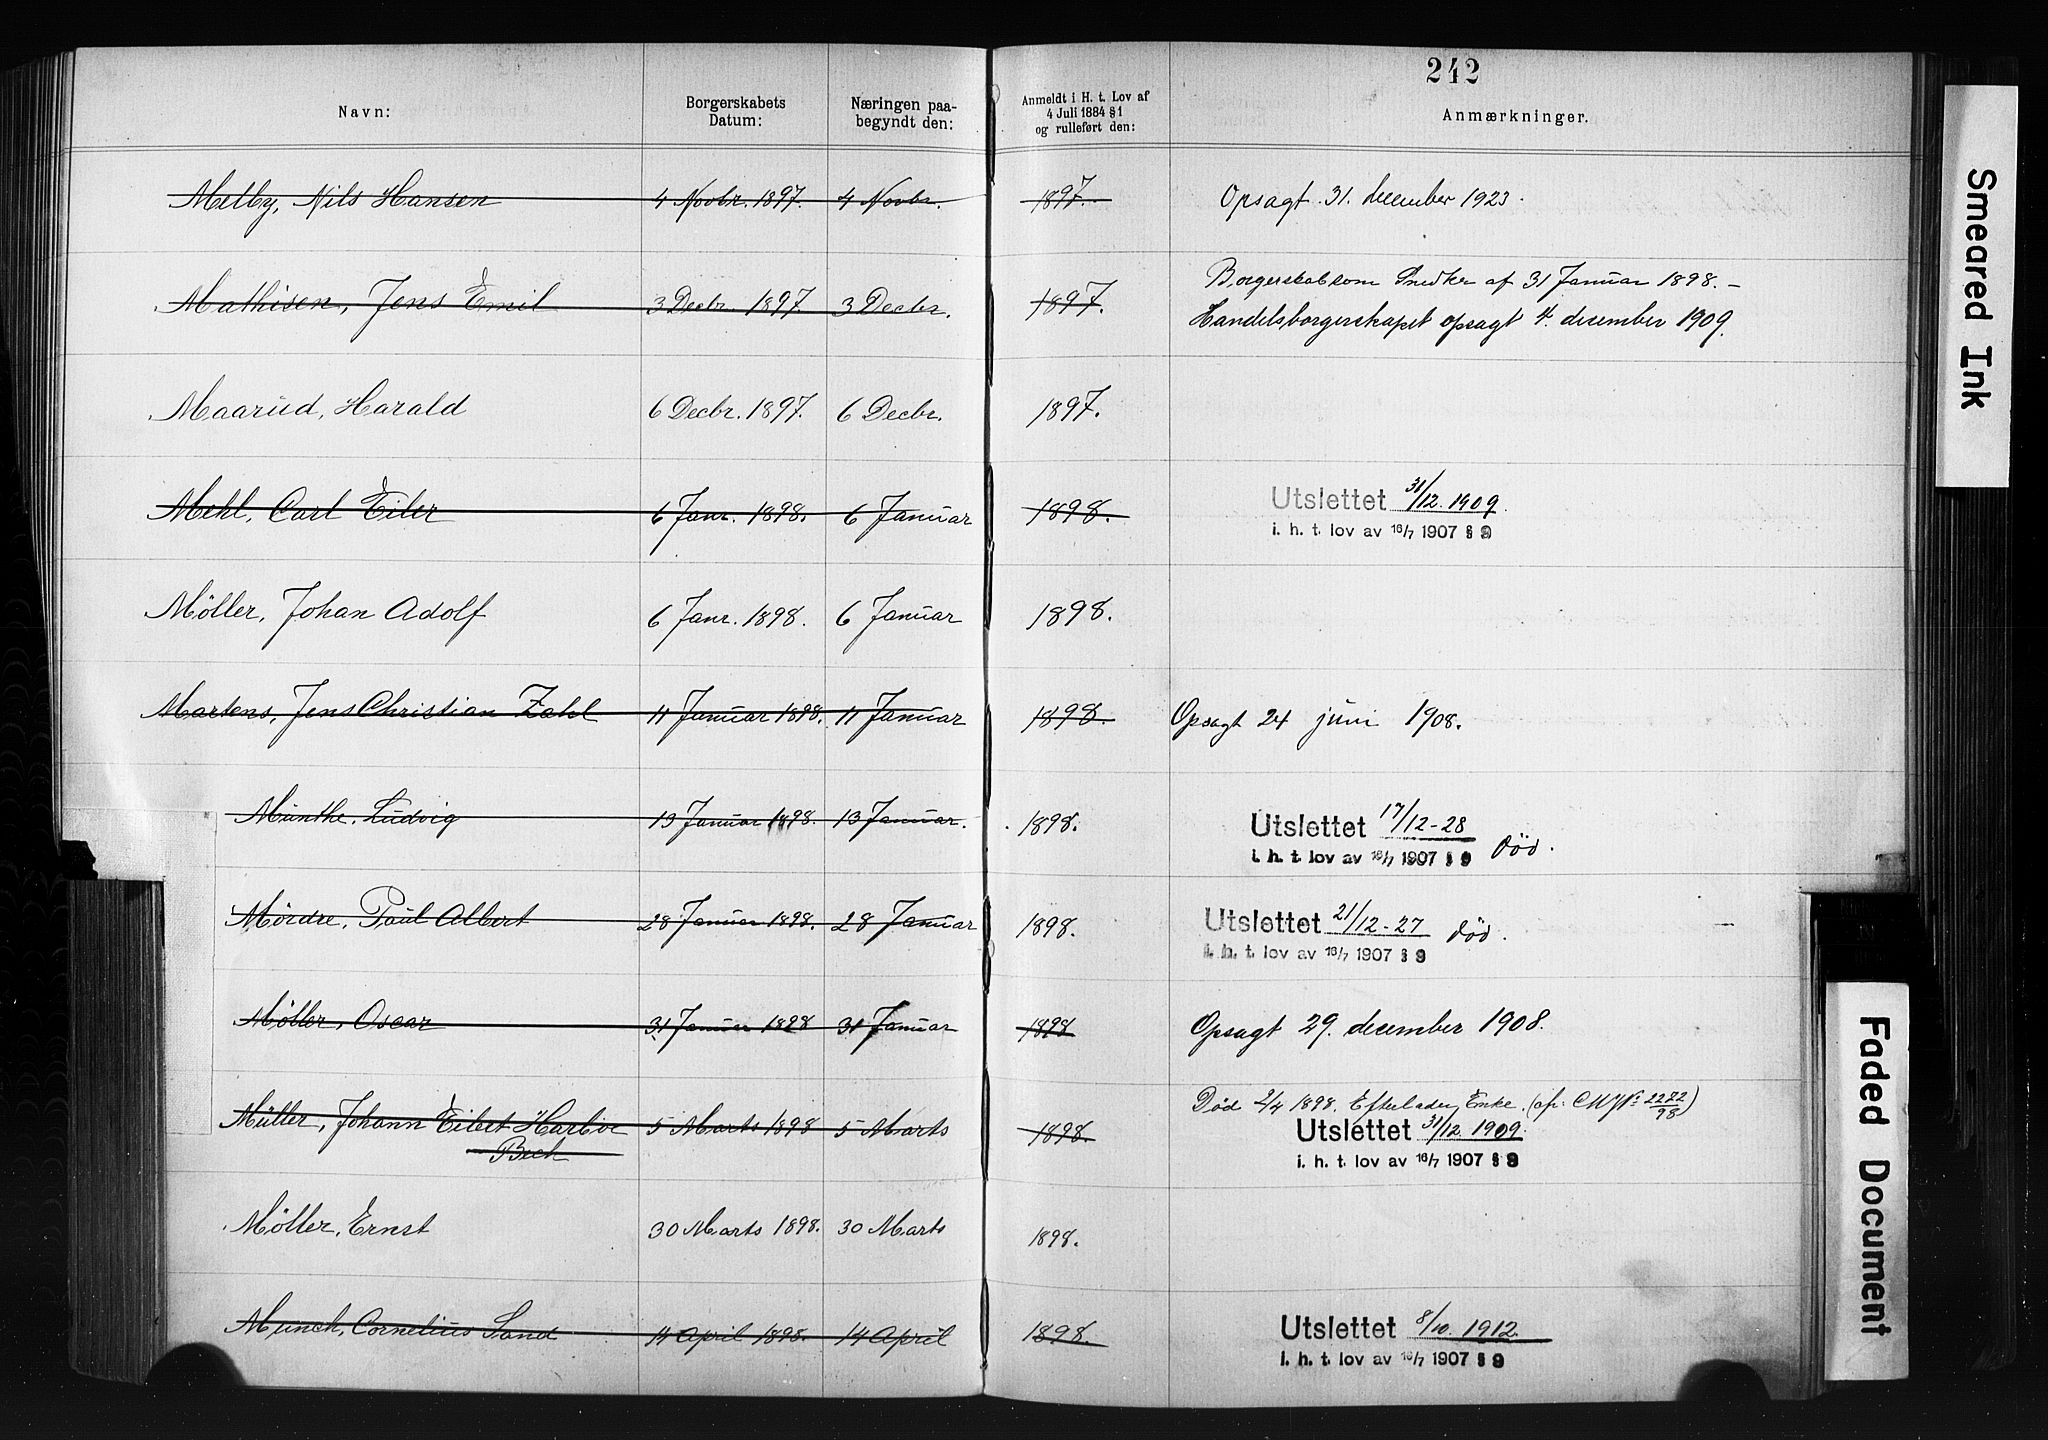 242
Navn: Borgerskabets Datum: Næringen paa-begyndt den: Anmeldt i H. t. Lov af 4 Juli 1884 § 1 og rulleført den: Anmærkninger.
Melby, Nils Hansen 4 Novbr. 1897. 4 Novbr. 1897. Opsagt 31. december 1923.
Borgerskab som Snedker af 31 Januar 1898. –
Mathisen, Jens Emil 3 Decbr. 1897. 3 Decbr. 1897. Handelsborgerskapet opsagt 4. desember 1909.
Maarud, Harald 6 Decbr. 1897. 6 Decbr. 1897.
Mehl, Carl Eiler 6 Janr. 1898. 6 Januar 1898. Utslettet 31/12. 1909.
i. h. t. lov av 16/7 1907 § 9
Möller, Johan Adolf 6 Janr. 1898. 6 Januar 1898.
Martens, Jens Christian Zahl 11 Januar 1898. 11 Januar 1898. Opsagt 24 juni 1908.
Munthe, Ludvig 13 Januar 1898. 13 Januar. 1898. Utslettet 17/12-28
i. h. t. lov av 16/7 1907 § 9 død.
Mørdre, Paul Albert 28 Januar 1898. 28 Januar 1898. Utslettet 21/12-27 død.
i. h. t. lov av 16/7 1907 § 9
Möller, Oscar 31 Januar 1898 31 Januar 1898 Opsagt 29. december 1908.
Død 2/4 1898. Efterlader Enke.
Müller, Johann Eibet Harboe 5 Marts 1898 5 Marts 1898. Utslettet 31/12. 1909.
Bech i. h. t. lov av 16/7 1907 § 9
Möller, Ernst 30 Marts 1898. 30 Marts 1898.
Munch, Cornelius Sand 14 April 1898. 14 April 1898. Utslettet 8/10. 1912.
i. h. t. lov av 16/7 1907 § 9
Smeared Ink
Faded Document